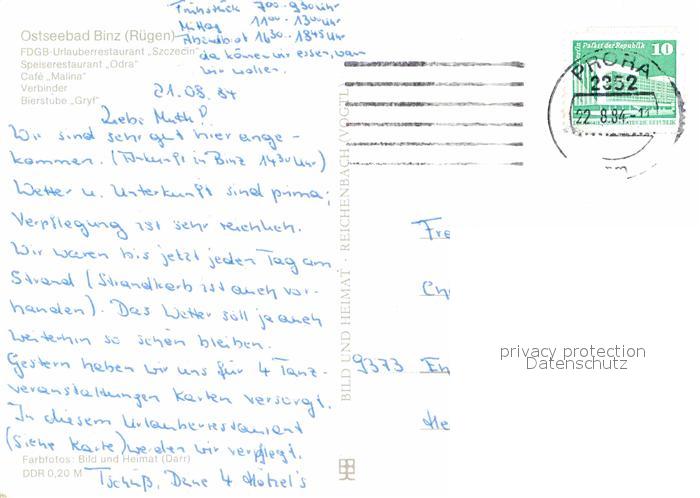 Frühstück 7⁰⁰-9³⁰ Uhr
Mittag 11⁰⁰-13⁰⁰ Uhr
Abendbrot 16³⁰-18⁴⁵ Uhr
da können wir essen, wann
wir wollen.
Ostseebad Binz (Rügen)
FDGB-Urlauberrestaurant „Szczecin"
Speiserestaurant „Odra"
Café „Malina"
Verbinder
Bierstube „Gryf"
21.08.84
Liebe Mutti!
Wir sind sehr gut hier ange-
kommen. (Ankunft in Binz 14³⁰ Uhr)
Wetter u. Unterkunft sind prima;
Verpflegung ist sehr reichlich.
Wir waren bis jetzt jeden Tag am
Strand (Strandkorb ist auch vor-
handen). Das Wetter soll ja auch
weiterhin so schön bleiben.
Gestern haben wir uns für 4 Tanz-
veranstaltungen Karten versorgt.
In diesem Urlauberrestaurant
(siehe Karte) werden wir verpflegt.
Tschüß, Deine 4
Farbfotos: Bild und Heimat (Darr)
DDR 0,20 M
BILD UND HEIMAT · REICHENBACH (VOGTL
Berlin Palast der Republik 10
PRORA
2352
22.8.84.-11
Fre
Ch
9373 Eh
He
privacy protection
Datenschutz